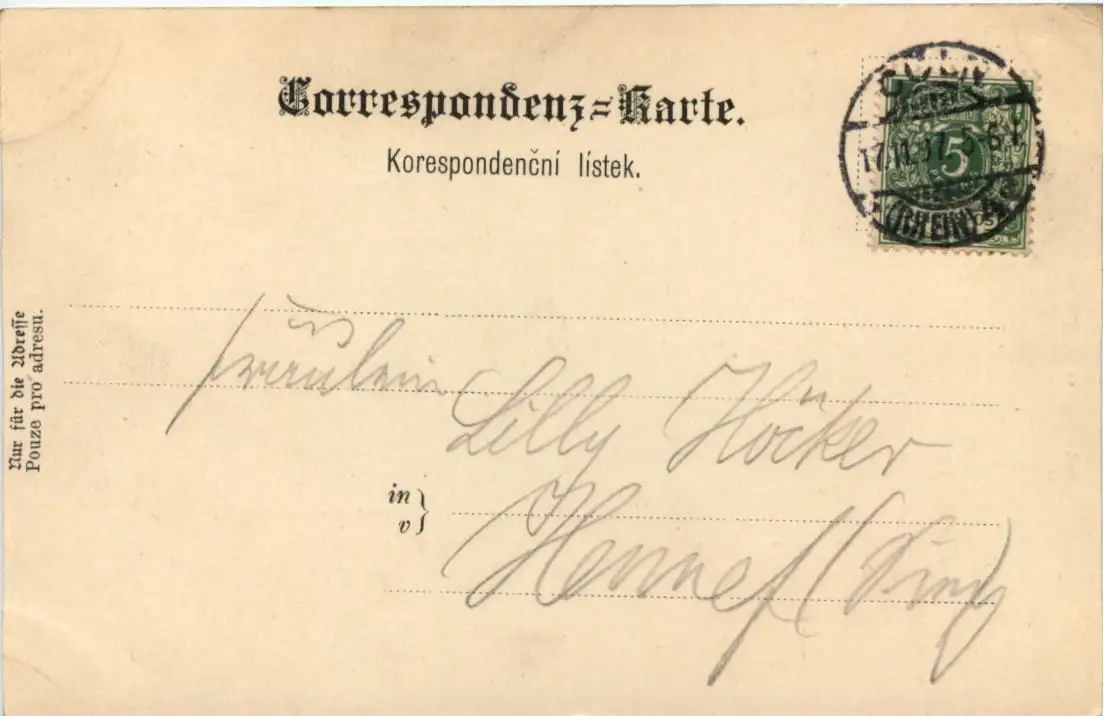 Correspondenz=Karte.
Korespondenční lístek.
CÖLN
17.11.97
(RHEIN)
5
Nur für die Adresse
Pouze pro adresu.
Fräulein
Lilly Höcker
in
v
Hennef (Sieg)